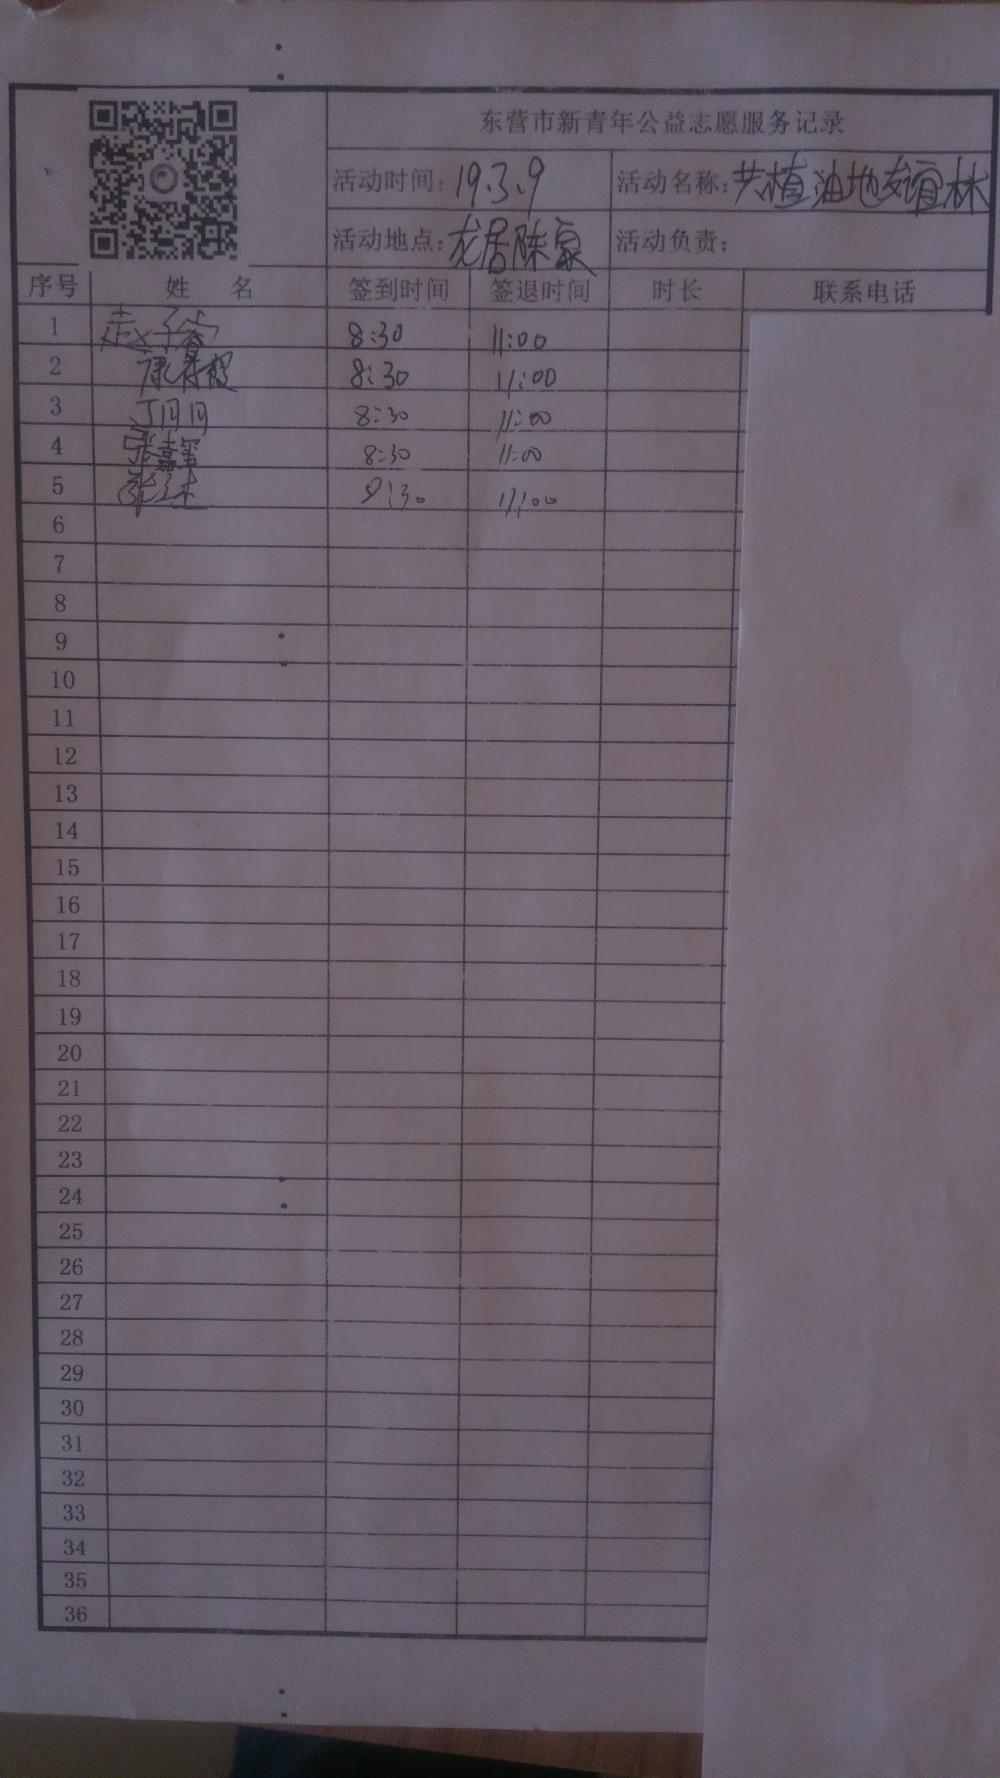 东营市新青年公益志愿服务记录
活动时间：19.3.9 活动名称：共植油地友谊林
活动地点：龙居陈家 活动负责：
序号 姓 名 签到时间 签退时间 时长 联系电话
1 赵子睿 8:30 11:00
2 康 8:30 11:00
3 丁月月 8:30 11:00
4 张嘉玺 8:30 11:00
5 8:30 11:00
6
7
8
9
10
11
12
13
14
15
16
17
18
19
20
21
22
23
24
25
26
27
28
29
30
31
32
33
34
35
36